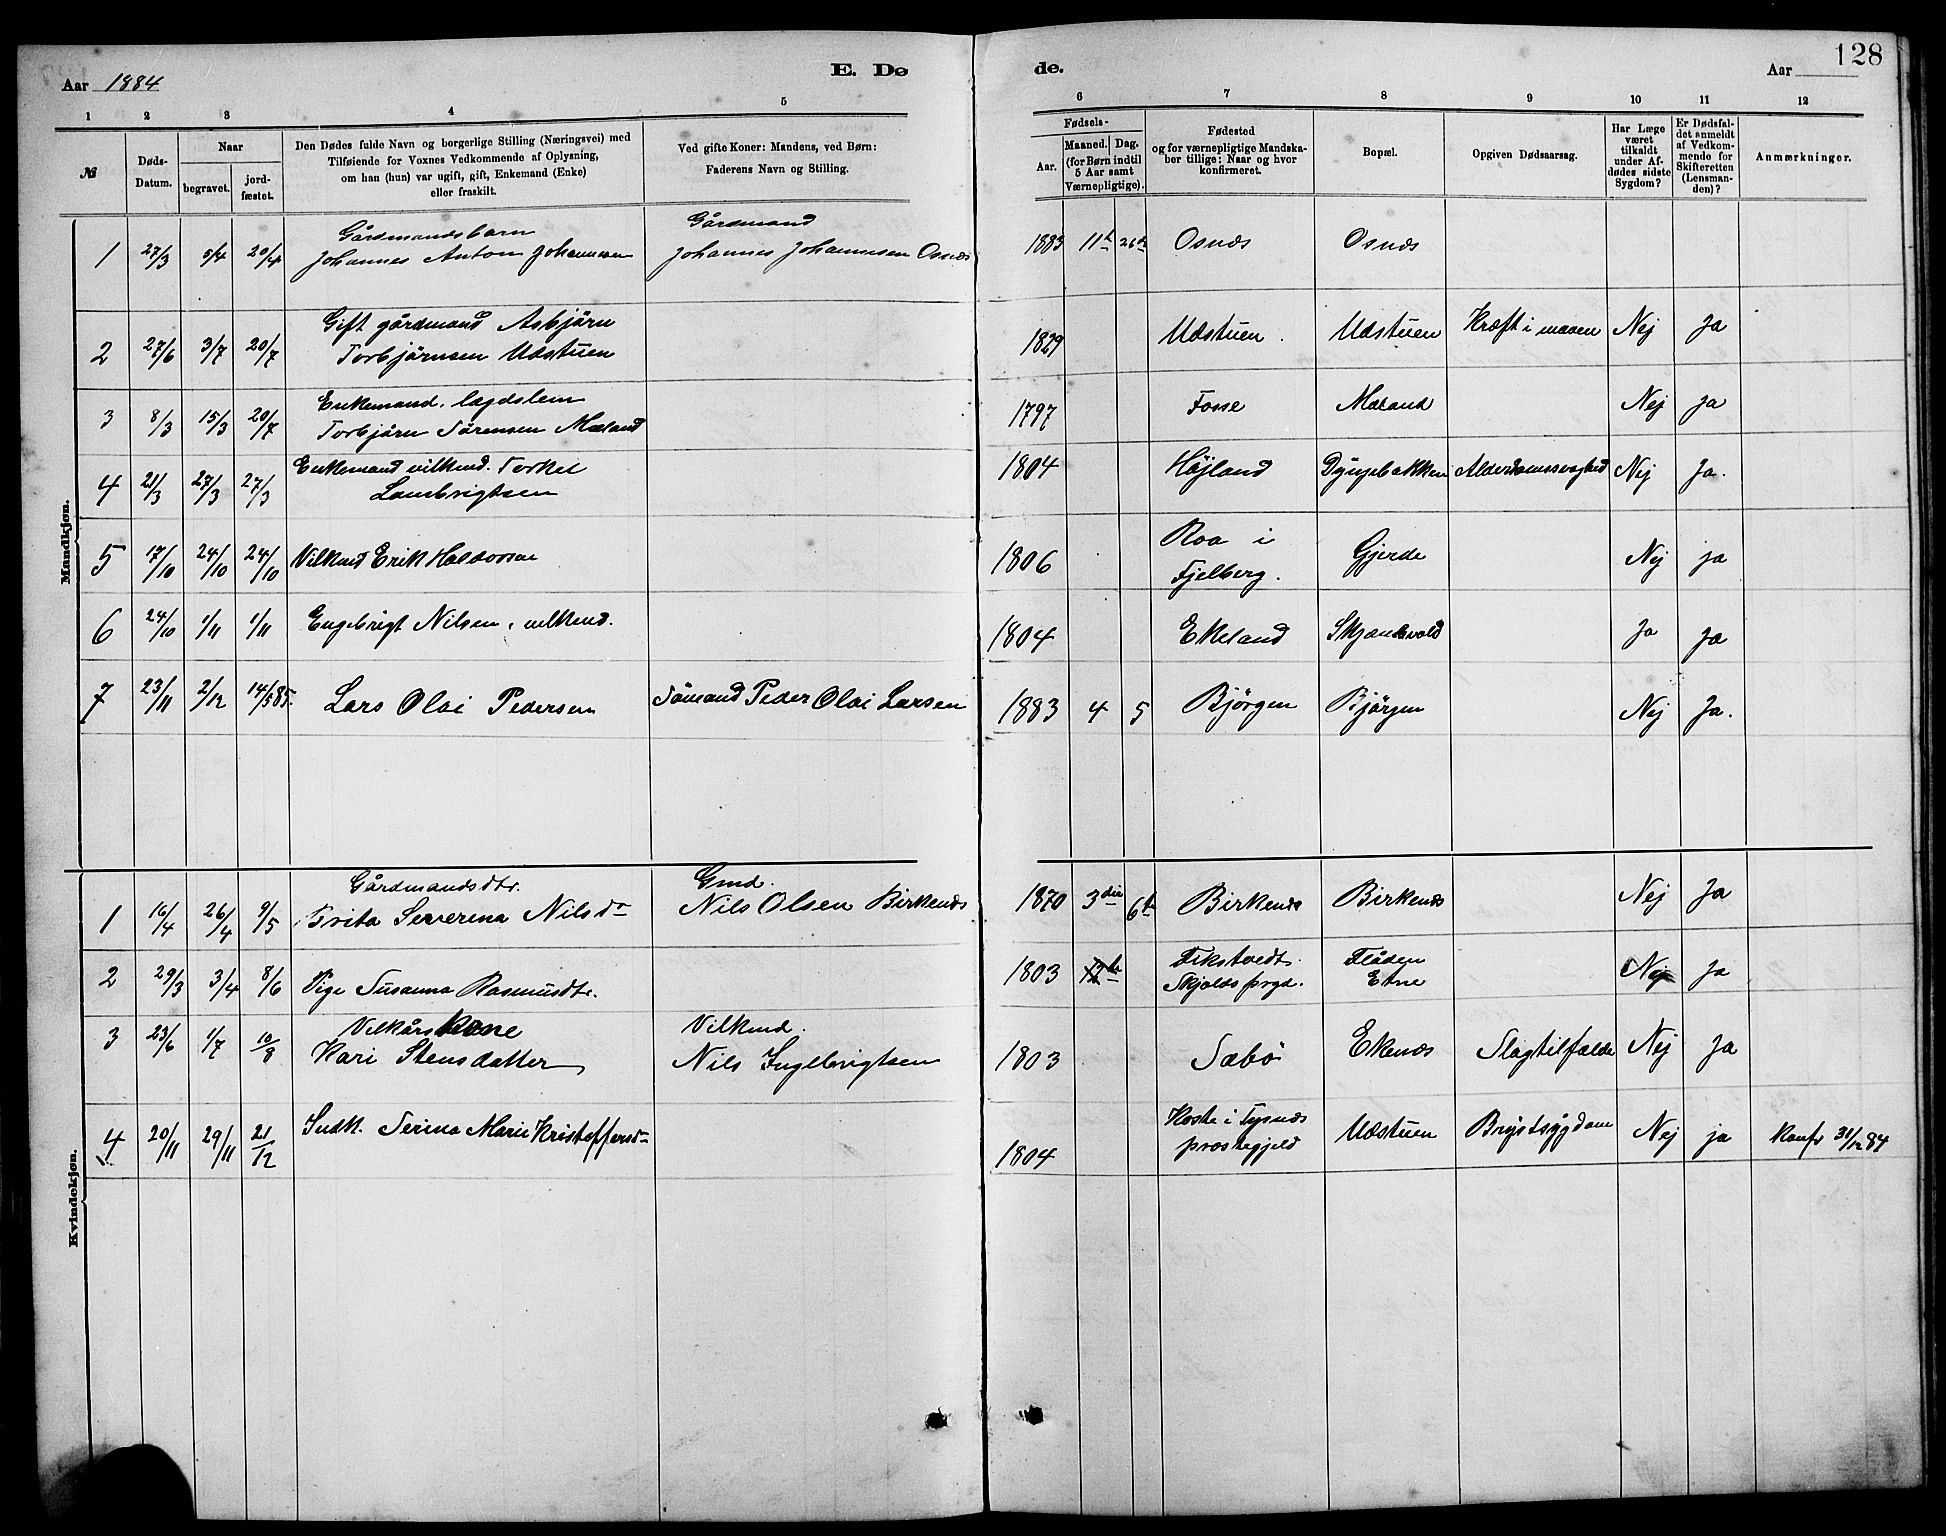 128
Aar 1884
E. Dø
de.
Aar
1 2 3 4 5 6 7 8 9 10 11 12
№
Døds-Datum.
Naar
begravet.
jord-fæstet.
Den Dødes fulde Navn og borgerlige Stilling (Næringsvei) med
Tilføiende for Voxnes Vedkommende af Oplysning,
om han (hun) var ugift, gift, Enkemand (Enke)
eller fraskilt.
Ved gifte Koner: Mandens, ved Børn:
Faderens Navn og Stilling.
Fødsels-
Aar.
Maaned. Dag.
(for Børn indtil
5 Aar samt
Værnepligtige).
Fødested
og for værnepligtige Mandska-
ber tillige: Naar og hvor
konfirmeret.
Bopæl.
Opgiven Dødsaarsag.
Har Læge
været
tilkaldt
under Af-
dødes sidste
Sygdom?
Er Dødsfal-
det anmeldt
af Vedkom-
mende for
Skifteretten
(Lensman-
den)?
Anmærkninger.
Mandkjøn.
Gårdmandsbarn Gårdmand
1 27/3 5/4 20/4 Johannes Anton Johannesen Johannes Johannesen Osnæs 1883 11te 26de Osnæs Osnæs
Gift gårdmand Asbjörn
2 27/6 3/7 20/7 Torbjörnsen Udstuen 1829 Udstuen. Udstuen Kræft i maven Nej Ja
Enkemand. lægdslem
3 8/3 15/3 20/7 Torbjörn Sörensen Mæland 1797 Fosse Mæland Nej Ja
Enkemand vilkmd. Torkel
4 21/3 27/3 27/3 Lambrigtsen 1804 Höjland Dyngebakken Alderdomssvaghed Nej Ja.
5 17/10 24/10 24/10 Vilkmd Erik Haldorsen 1806 Roa i
Fjelberg. Gjerde Nej ja
6 24/10 1/11 1/11 Engebrigt Nilsen, vilkmd. 1804 Ekeland Ja Ja
7 23/11 2/12 14/5 85. Lars Olai Pedersen Sömand Peder Olai Larsen 1883 4 5 Bjørgen Björgen Nej Ja.
Kvindekjøn.
Gårdmandsdtr. Gmd.
1 16/4 26/4 9/5 Brita Severina Nilsdr Nils Olsen Birkenæs 1870 3die 6te Birkenæs Birkenæs Nej Ja
2 29/3 3/4 8/6 Pige Susanna Rasmusdtr. 1803 Tikstvedt.
Skjolds prgd. Flåden
Etne Nej Ja
Vilkårskone Vilkmd.
3 23/6 1/7 10/8 Kari Stensdatter Nils Ingebrigtsen 1803 Sæbö Ekenæs Slagtilfælde Nej Ja
4 20/11 29/11 21/12 Indk. Serina Marie Kristoffersdr 1804 i Tysnæs
prestegjeld Udstuen Brystsygdom Nej ja Konfr 31/12 84